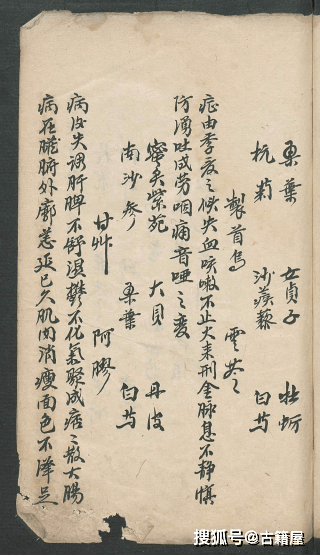 桑葉 女貞子 牡蛎
杭菊 沙蒺藜 白芍
製首烏 雲苓
症由季夏之 失血咳嗽不止火来刑金脉息不静慎
防湧吐成劳咽痛音哑之变
蜜炙紫苑 大貝 丹皮
南沙參 桑葉 白芍
甘艸 阿膠
病後失調肝脾不舒湿鬱不化氣聚成痞〻散大腸
病在臓腑外廓蔓延已久肌肉消瘦面色不澤足
搜狐号@古籍屋